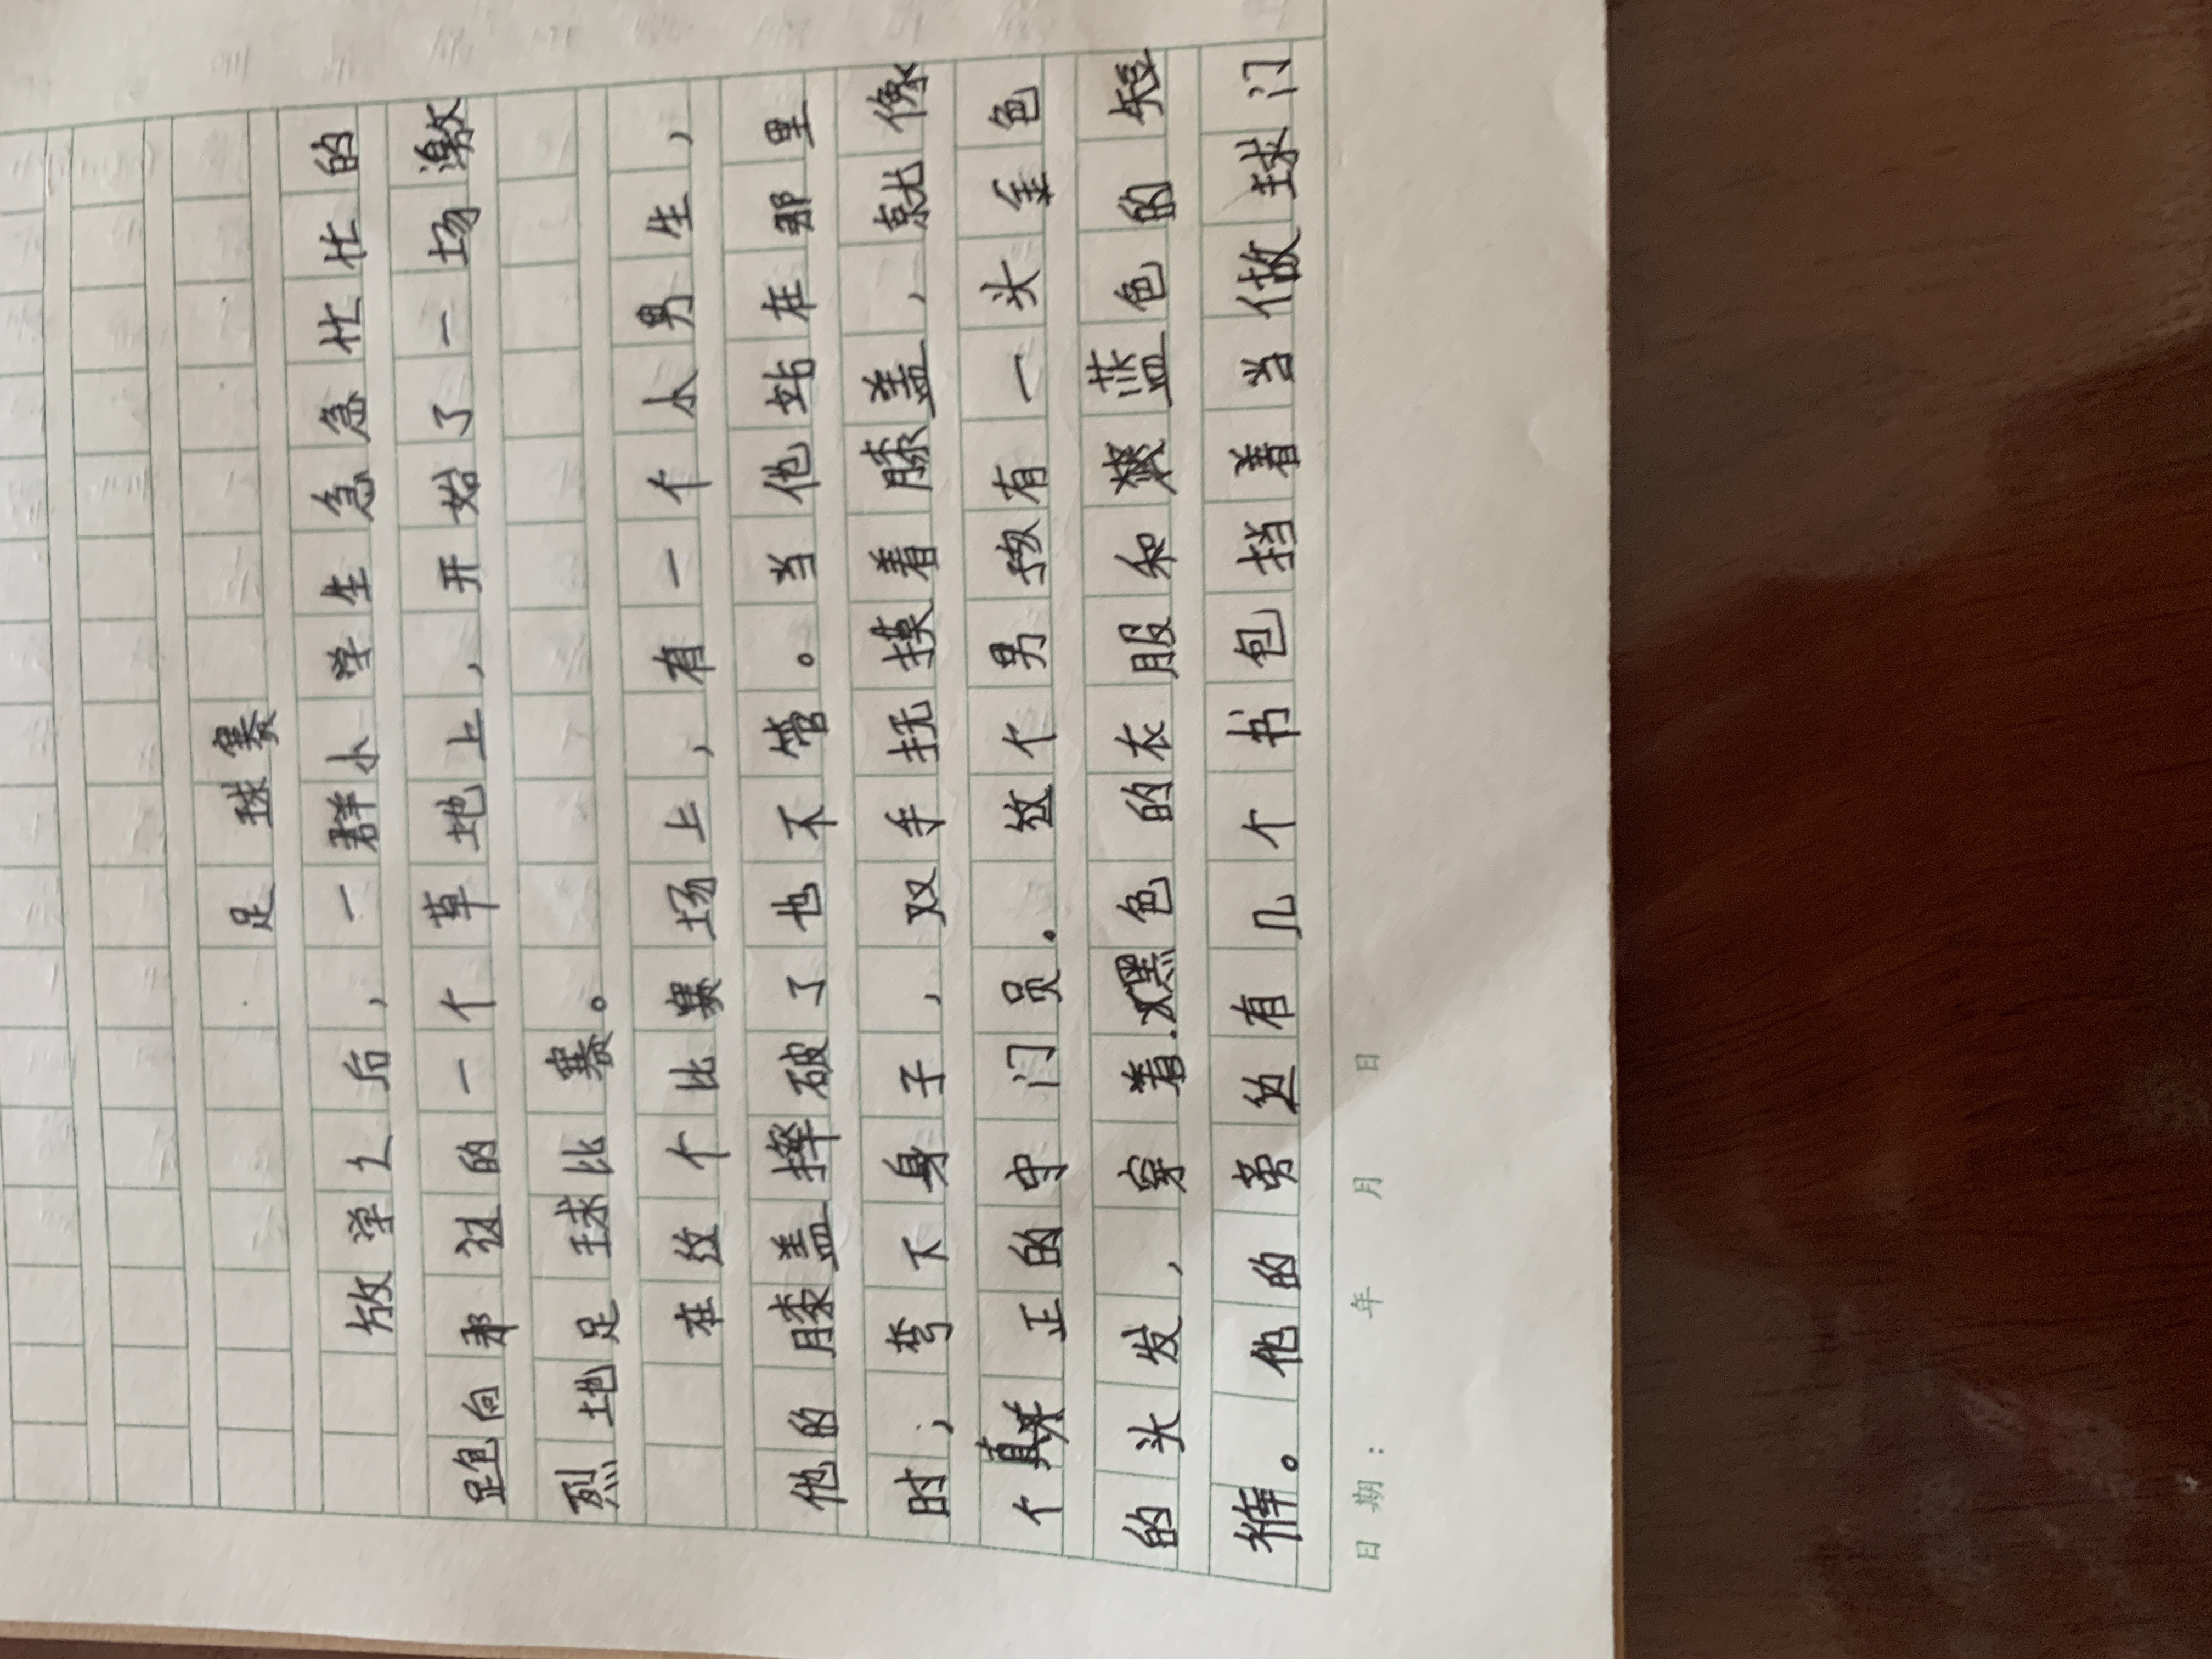 足球赛
放学之后，一群小学生急急忙忙的
跑向那边的一个草地上，开始了一场激
烈地足球比赛。
在这个比赛场上，有一个小男生，
他的膝盖摔破了也不管。当他站在那里
时，弯下身子，双手抚摸着膝盖，就像
个真正的守门员。这个男孩有一头金色
的头发，穿着黑色的衣服和蓝色的短
裤。他的旁边有几个书包挡着当做球门
日期： 年 月 日